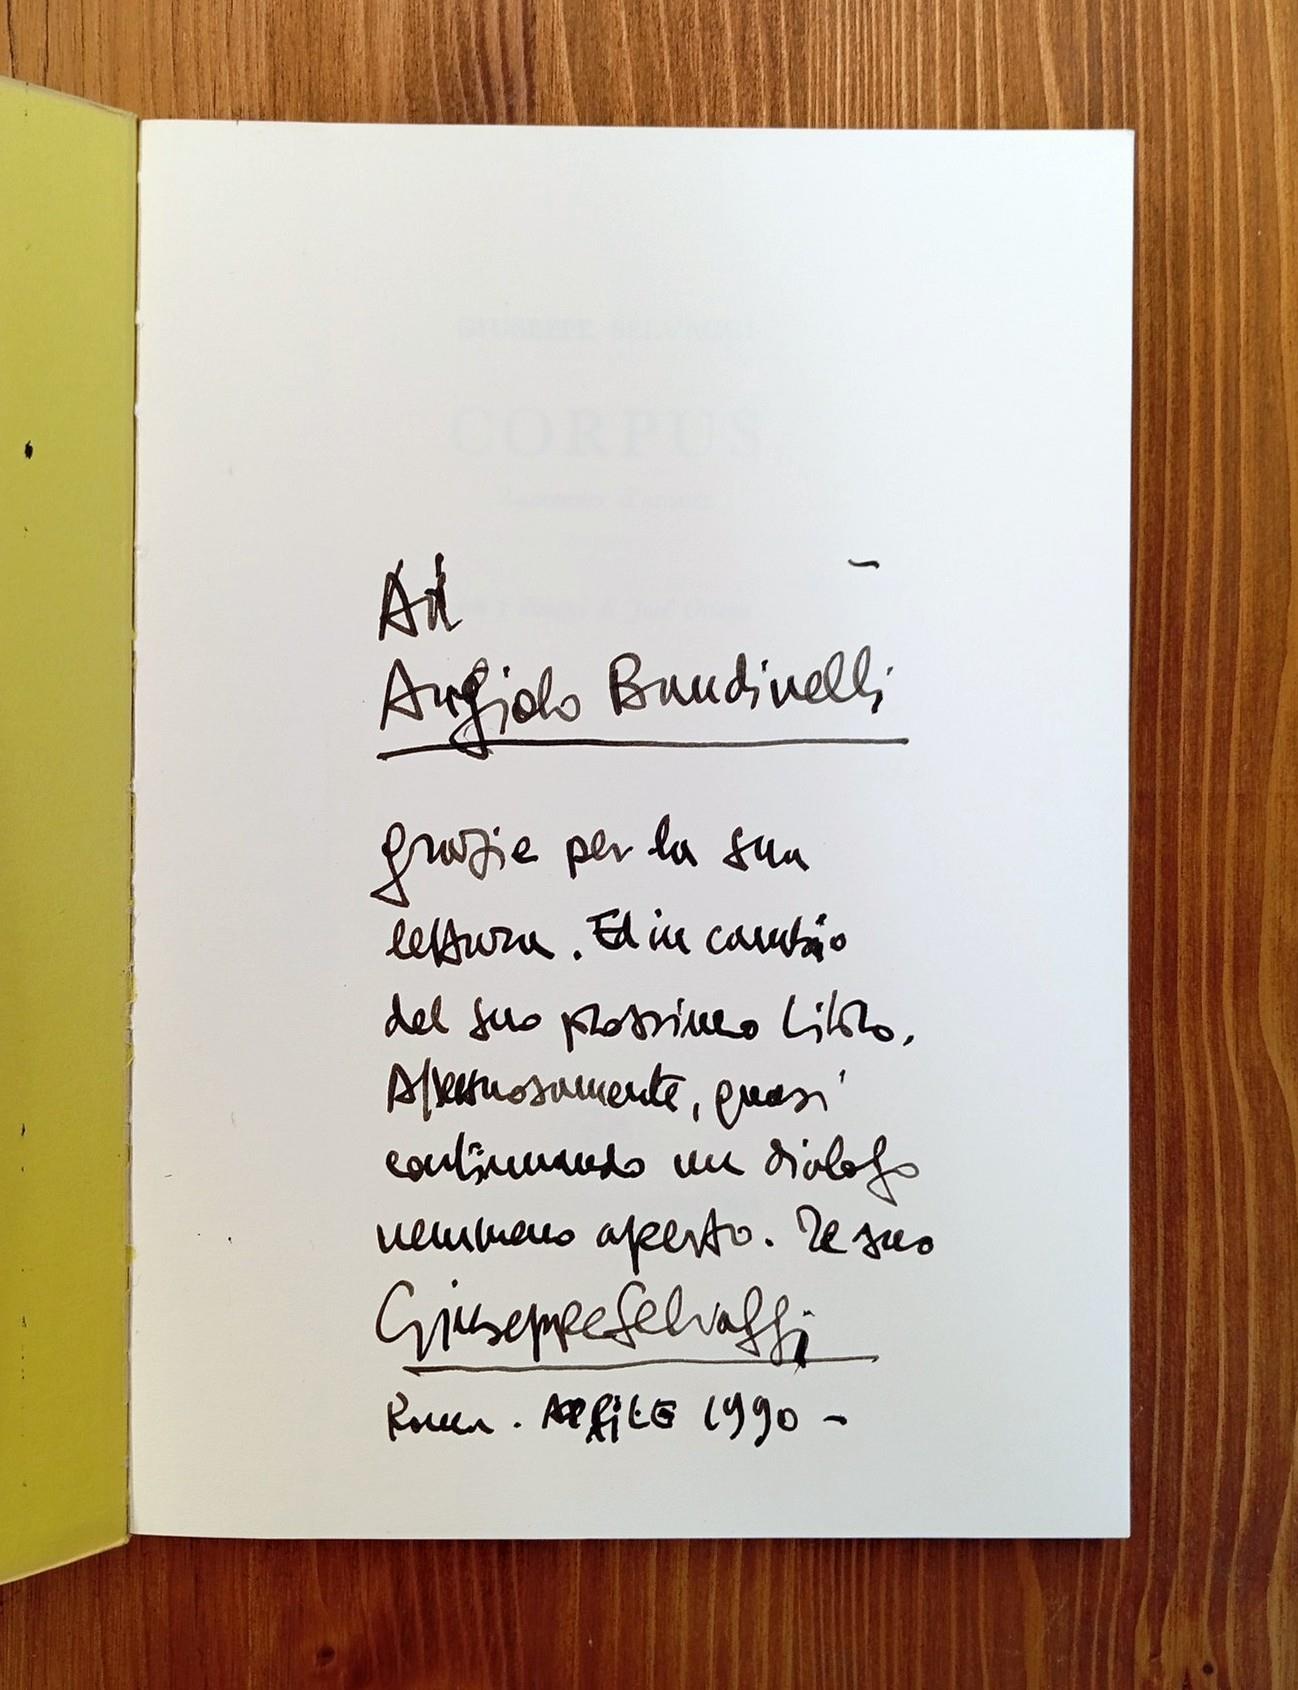 GIUSEPPE SELVAGGI
CORPUS
Ad
Angiolo Bandinelli
grazie per la sua
lettura. Ed in cambio
del suo prossimo libro,
Affettuosamente, quasi
continuando un dialogo
nemmeno aperto. Il suo
Giuseppe Selvaggi
Roma. APRILE 1990 -